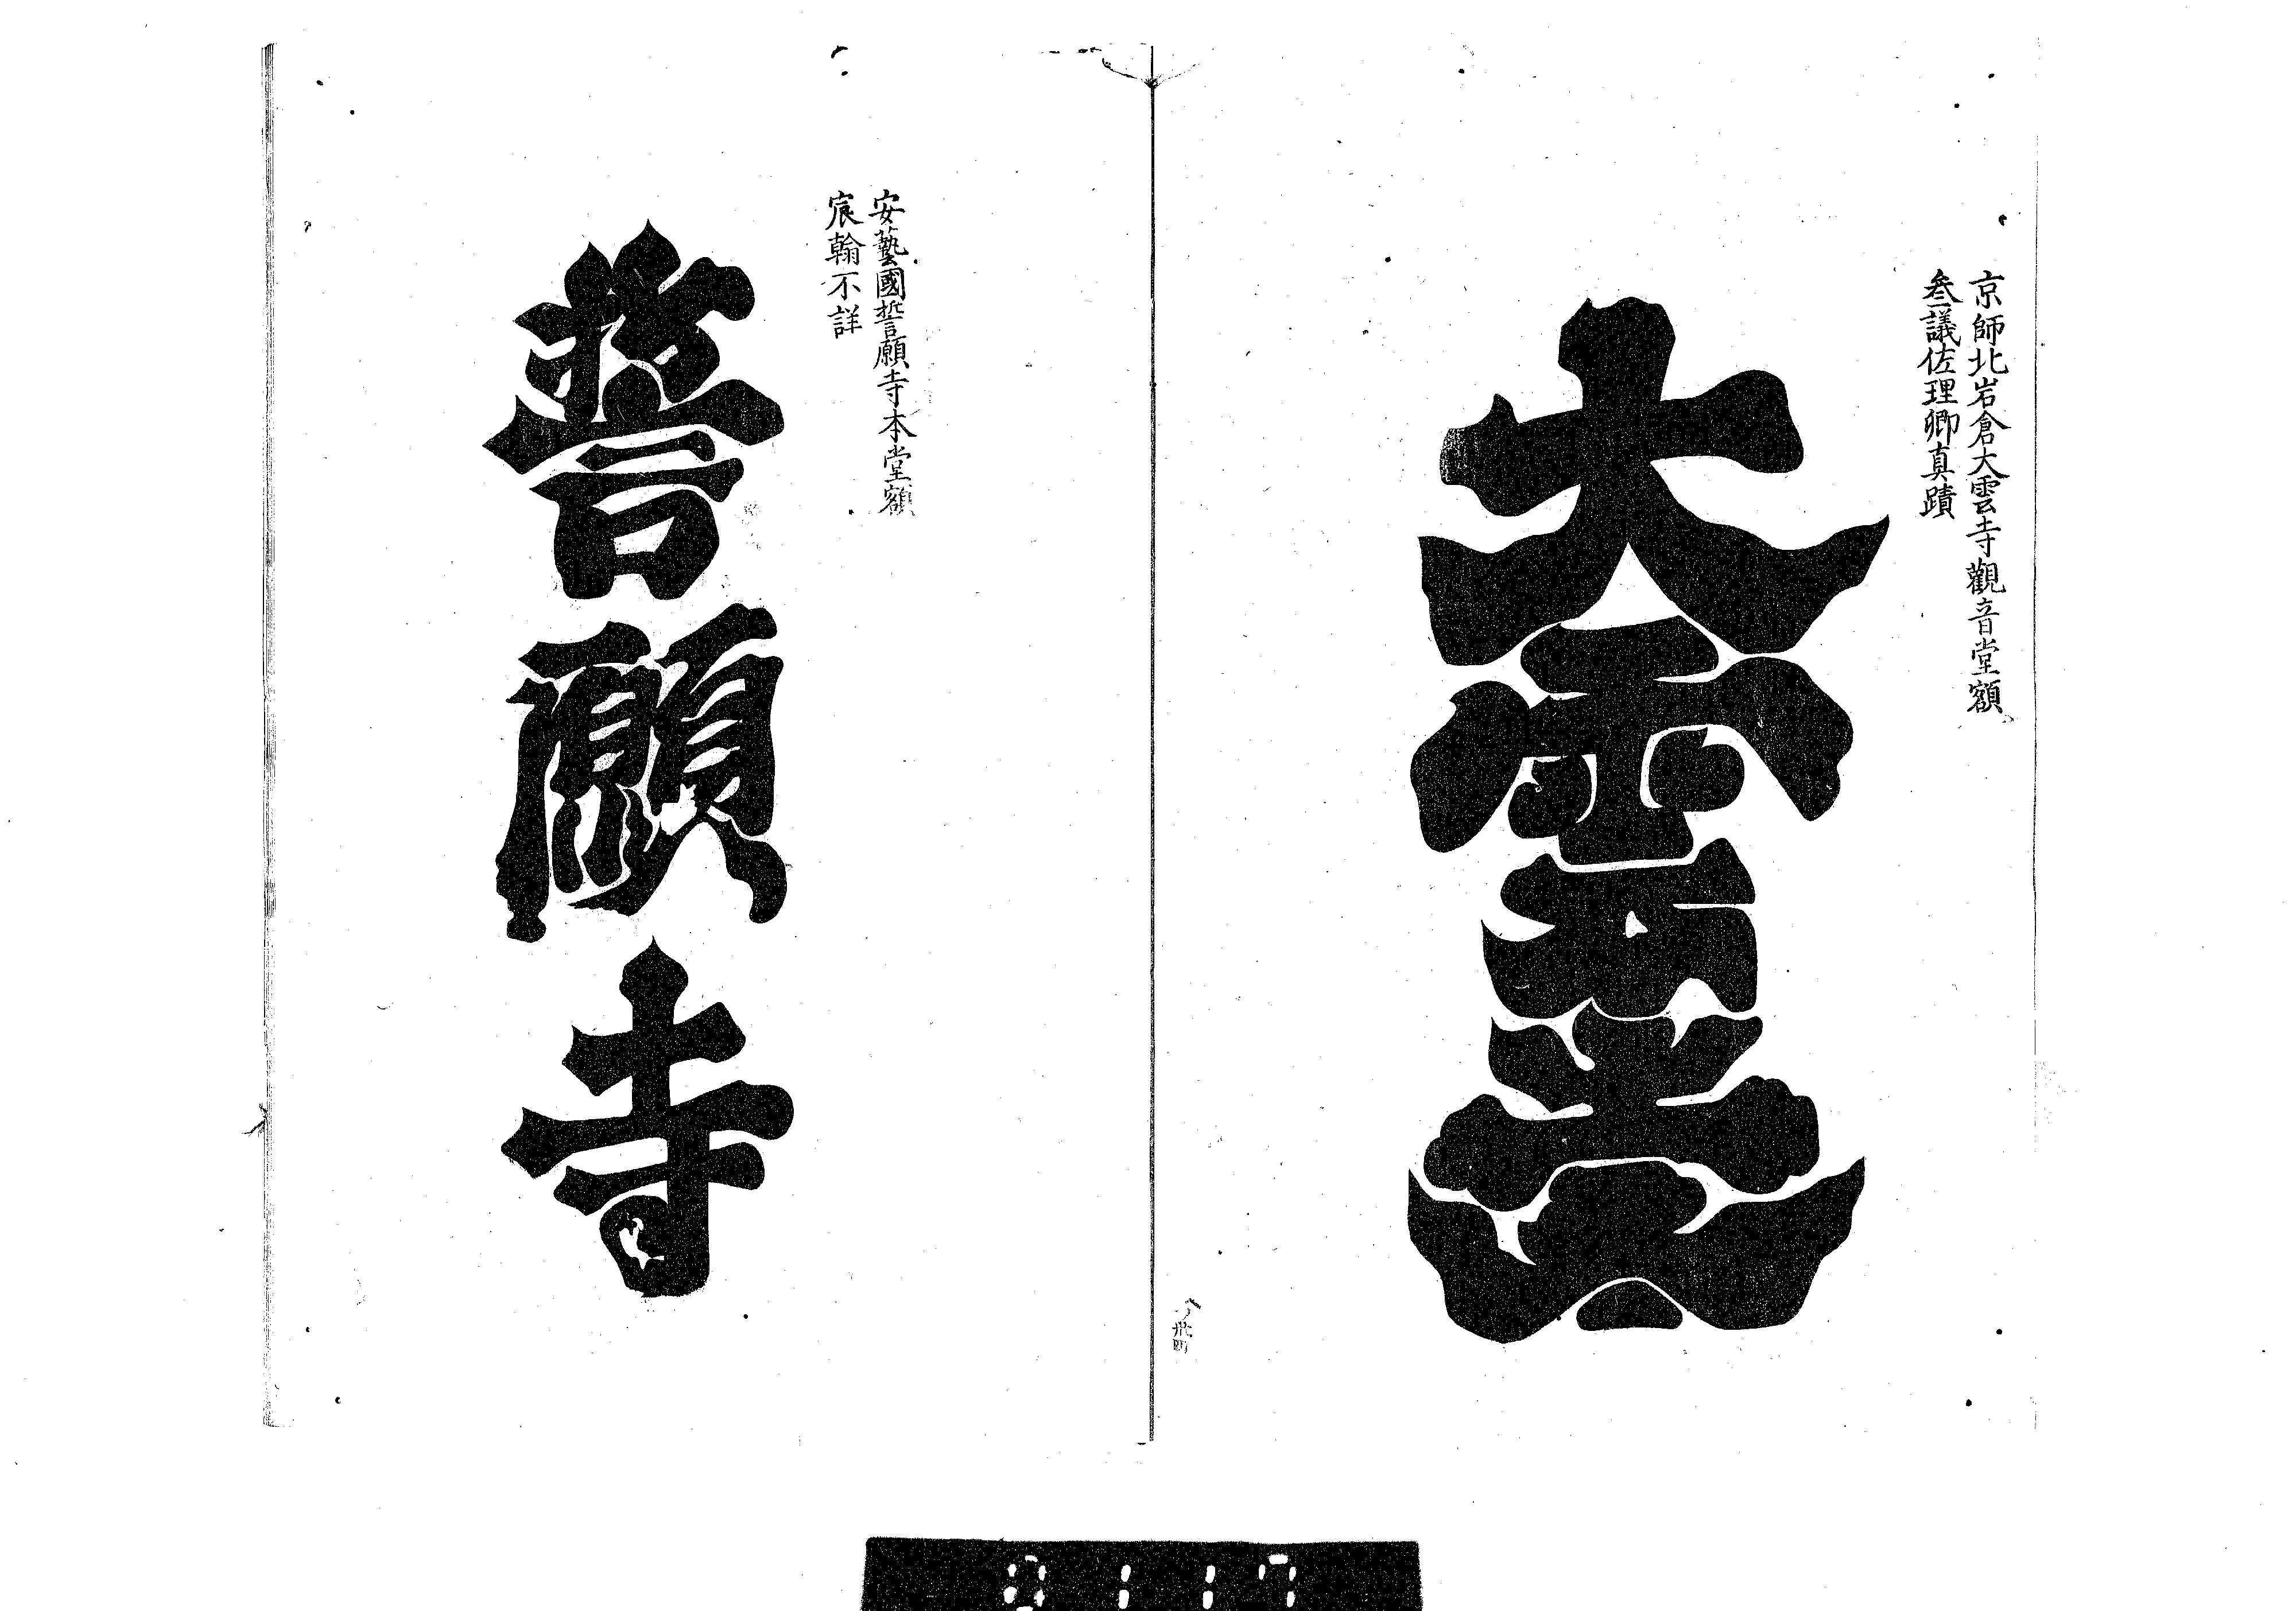 京師北岩倉大雲寺觀音堂額
叅議佐理卿真蹟
大雲
安藝國誓願寺本堂額
宸翰不詳
誓願寺